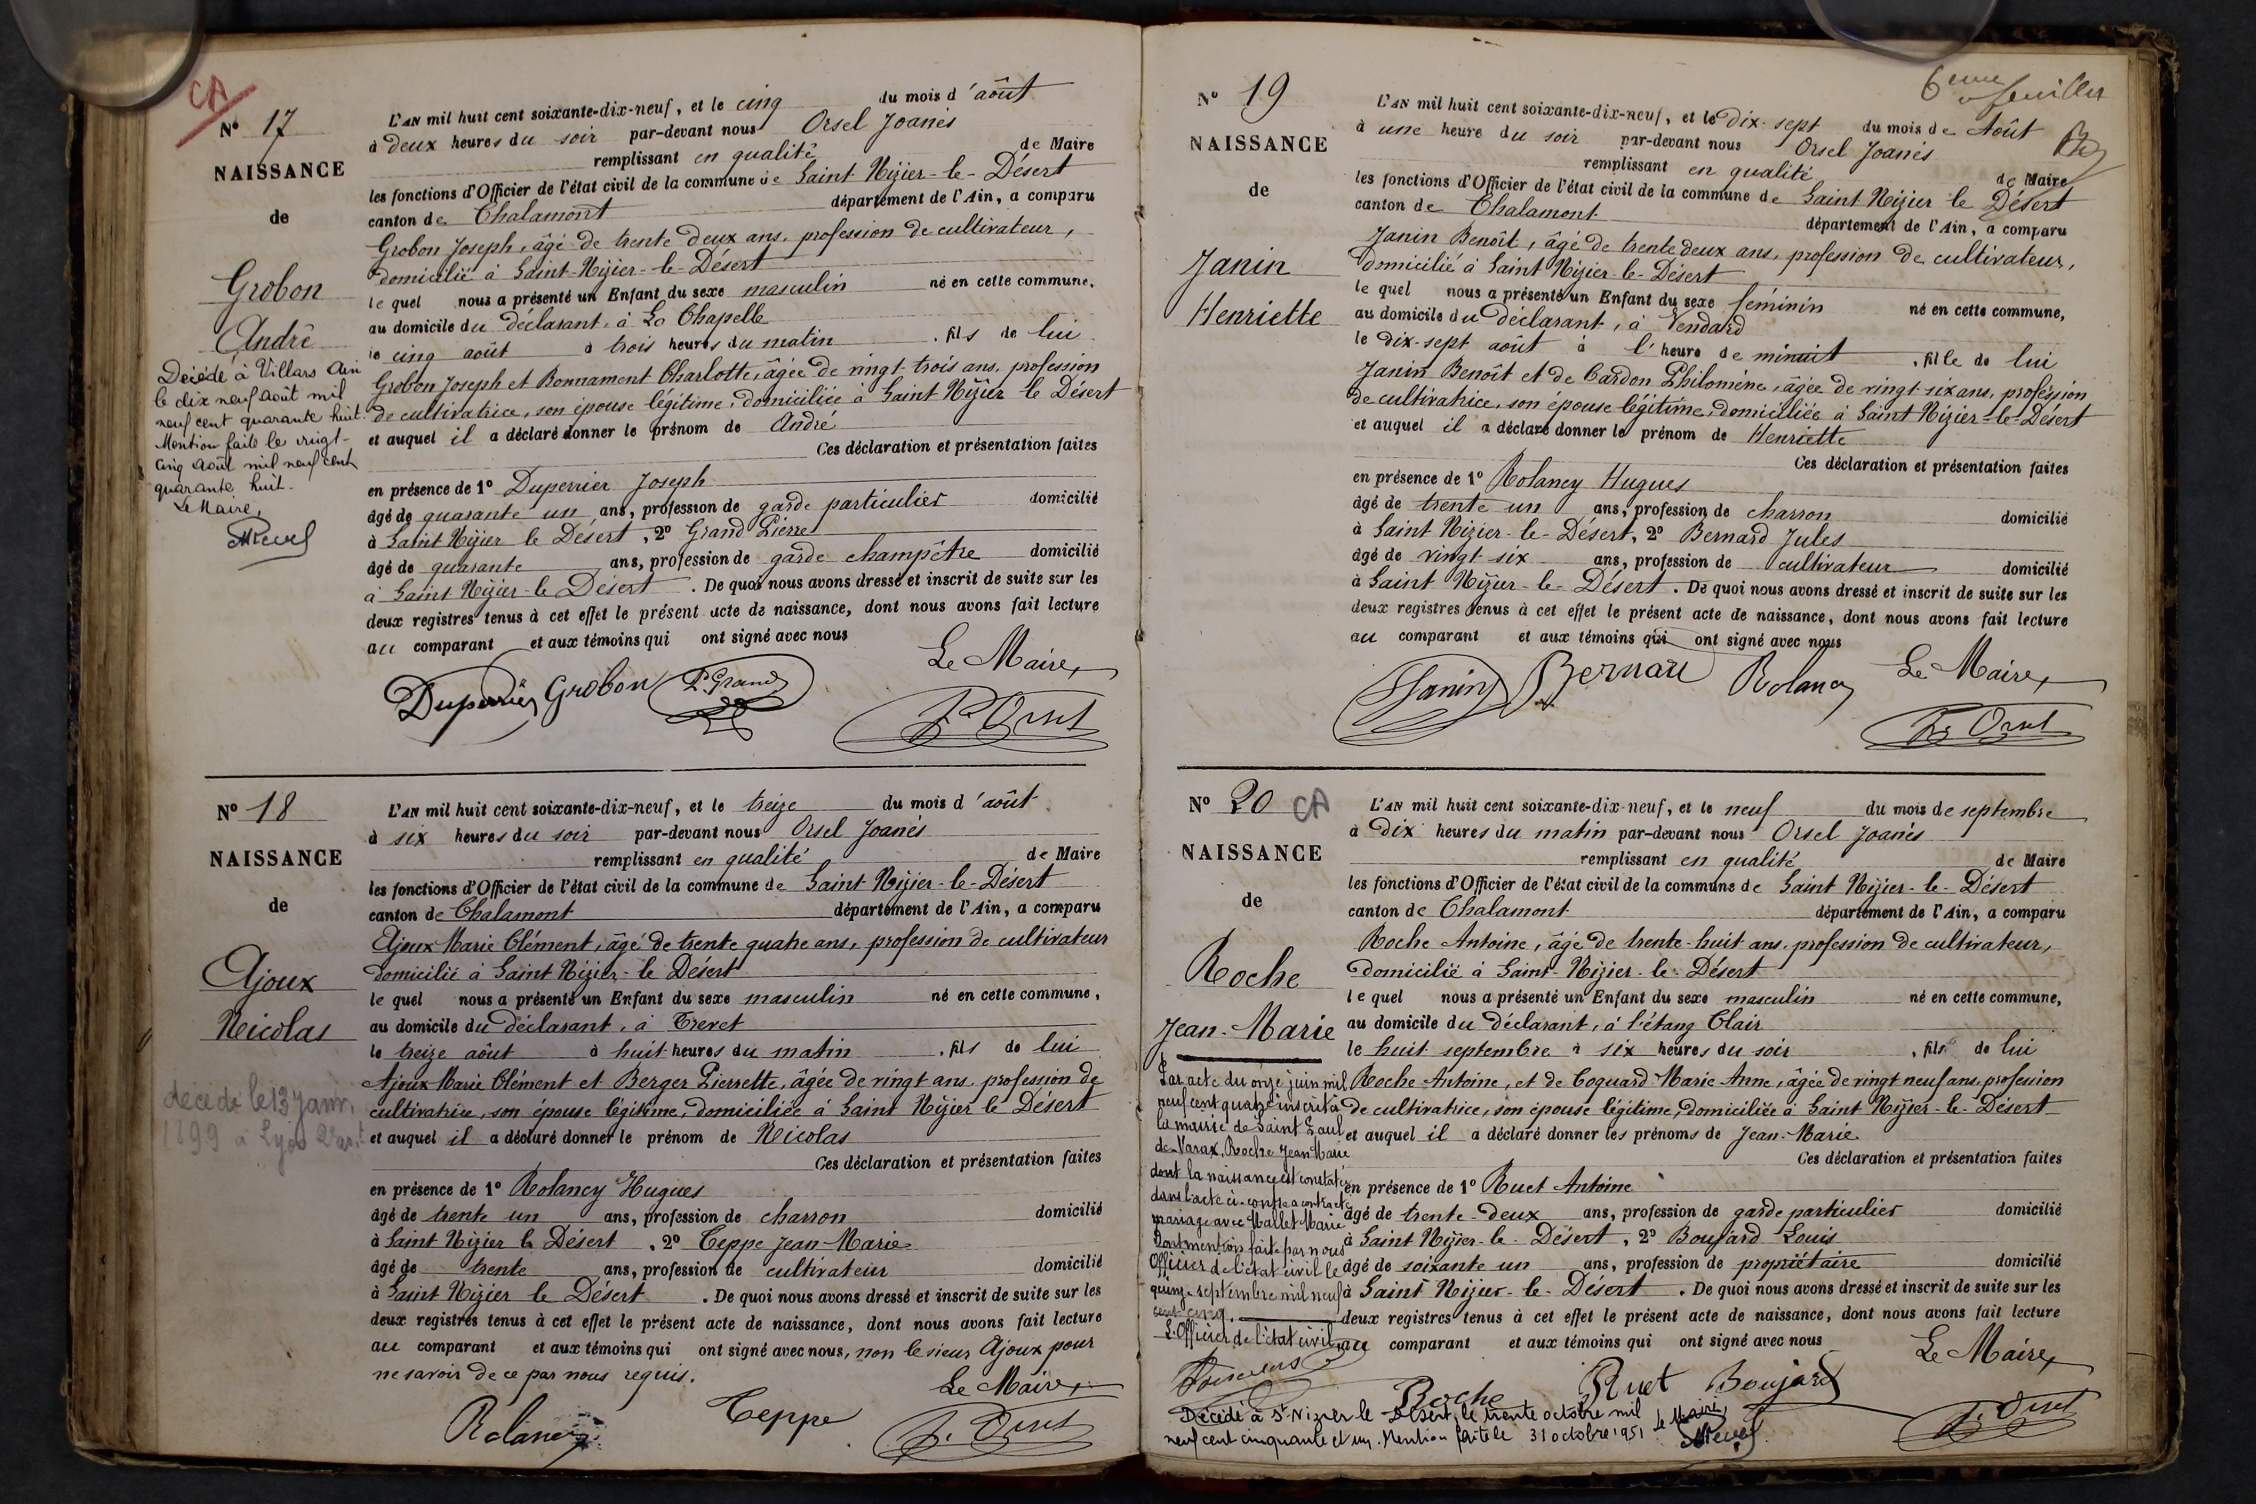 CA
N° 17
NAISSANCE
de
Grobon
André
Décédé à Villars Ain
le dix neuf août mil
neuf cent quarante huit.
Mention faite le vingt-
cinq août mil neuf cent
quarante huit.
Le Maire,
L'AN mil huit cent soixante-dix-neuf, et le cinq du mois d'août
à deux heures du soir par-devant nous Orsel Joanès
remplissant en qualité de Maire
les fonctions d'Officier de l'état civil de la commune de Saint Nizier-le-Désert
canton de Chalamont département de l'Ain, a comparu
Grobon Joseph, âgé de trente deux ans, profession de cultivateur,
domicilié à Saint-Nizier-le-Désert
le quel nous a présenté un Enfant du sexe masculin né en cette commune,
au domicile du déclarant, à La Chapelle
le cinq août à trois heures du matin, fils de lui
Grobon Joseph et Bonnament Charlotte, âgée de vingt-trois ans, profession
de cultivatrice, son épouse légitime, domiciliée à Saint Nizier le Désert
et auquel il a déclaré donner le prénom de André
Ces déclaration et présentation faites
en présence de 1° Duperrier Joseph
âgé de quarante un ans, profession de garde particulier domicilié
à Saint Nizier le Désert, 2° Grand Pierre
âgé de quarante ans, profession de garde champêtre domicilié
à Saint Nizier-le Désert. De quoi nous avons dressé et inscrit de suite sur les
deux registres tenus à cet effet le présent acte de naissance, dont nous avons fait lecture
au comparant et aux témoins qui ont signé avec nous
Le Maire,
Duperrier Grobon P. Grand
J. Orsel
N° 18
NAISSANCE
de
Ajoux
Nicolas
décédé le 13 janv.
1899 à Lyon 2e arr.t
L'AN mil huit cent soixante-dix-neuf, et le treize du mois d'août
à six heures du soir par-devant nous Orsel Joanès
remplissant en qualité de Maire
les fonctions d'Officier de l'état civil de la commune de Saint-Nizier-le-Désert
canton de Chalamont département de l'Ain, a comparu
Ajoux Marie Clément, âgé de trente quatre ans, profession de cultivateur
domicilié à Saint Nizier-le Désert
le quel nous a présenté un Enfant du sexe masculin né en cette commune,
au domicile du déclarant, à Trevet
le treize août à huit heures du matin, fils de lui
Ajoux Marie Clément et Berger Pierrette, âgée de vingt ans, profession de
cultivatrice, son épouse légitime, domiciliée à Saint Nizier le Désert
et auquel il a déclaré donner le prénom de Nicolas
Ces déclaration et présentation faites
en présence de 1° Rolancy Hugues
âgé de trente un ans, profession de charron domicilié
à Saint Nizier le Désert, 2° Teppe Jean-Marie
âgé de trente ans, profession de cultivateur domicilié
à Saint Nizier le Désert. De quoi nous avons dressé et inscrit de suite sur les
deux registres tenus à cet effet le présent acte de naissance, dont nous avons fait lecture
au comparant et aux témoins qui ont signé avec nous, non le sieur Ajoux pour
ne savoir de ce par nous requis.
Le Maire,
Rolancy Teppe J. Orsel
6eme feuillet
N° 19
NAISSANCE
de
Janin
Henriette
L'AN mil huit cent soixante-dix-neuf, et le dix-sept du mois de Août
à une heure du soir par-devant nous Orsel Joanès
remplissant en qualité de Maire
les fonctions d'Officier de l'état civil de la commune de Saint Nizier le Désert
canton de Chalamont département de l'Ain, a comparu
Janin Benoît, âgé de trente deux ans, profession de cultivateur,
domicilié à Saint Nizier-le-Désert
le quel nous a présenté un Enfant du sexe féminin né en cette commune,
au domicile du déclarant, à Vendard
le dix-sept août à l'heure de minuit, fille de lui
Janin Benoît et de Cardon Philomène, âgée de vingt-six ans, profession
de cultivatrice, son épouse légitime, domiciliée à Saint Nizier-le-Désert
et auquel il a déclaré donner le prénom de Henriette
Ces déclaration et présentation faites
en présence de 1° Rolancy Hugues
âgé de trente un ans, profession de charron domicilié
à Saint Nizier-le-Désert, 2° Bernard Jules
âgé de vingt-six ans, profession de cultivateur domicilié
à Saint Nizier-le-Désert. De quoi nous avons dressé et inscrit de suite sur les
deux registres tenus à cet effet le présent acte de naissance, dont nous avons fait lecture
au comparant et aux témoins qui ont signé avec nous
Janin Bernard Rolancy Le Maire,
J. Orsel
N° 20 CA
NAISSANCE
de
Roche
Jean-Marie
Par acte du onze juin mil
neuf cent quatre inscrit à
la mairie de Saint Paul
de Varax, Roche Jean Marie
dont la naissance est constatée
dans l'acte ci-contre a contracté
mariage avec Mallet Marie
Dont mention faite par nous
Officier de l'état civil le
quinze septembre mil neuf
cent cinq.
L'Officier de l'état civil,
L'AN mil huit cent soixante-dix-neuf, et le neuf du mois de septembre
à dix heures du matin par-devant nous Orsel Joanès
remplissant en qualité de Maire
les fonctions d'Officier de l'état civil de la commune de Saint Nizier-le-Désert
canton de Chalamont département de l'Ain, a comparu
Roche Antoine, âgé de trente-huit ans, profession de cultivateur,
domicilié à Saint-Nizier-le-Désert
le quel nous a présenté un Enfant du sexe masculin né en cette commune,
au domicile du déclarant, à l'étang Clair
le huit septembre à six heures du soir, fils de lui
Roche Antoine, et de Coquard Marie Anne, âgée de vingt neuf ans, profession
de cultivatrice, son épouse légitime, domiciliée à Saint Nizier-le-Désert
et auquel il a déclaré donner les prénoms de Jean-Marie
Ces déclaration et présentation faites
en présence de 1° Ruet Antoine
âgé de trente-deux ans, profession de garde particulier domicilié
à Saint Nizier-le-Désert, 2° Boujard Louis
âgé de soixante un ans, profession de propriétaire domicilié
à Saint Nizier-le-Désert. De quoi nous avons dressé et inscrit de suite sur les
deux registres tenus à cet effet le présent acte de naissance, dont nous avons fait lecture
au comparant et aux témoins qui ont signé avec nous
Le Maire,
Roche Ruet Boujard J. Orsel
Décédé à St Nizier le Désert, le trente octobre mil
neuf cent cinquante et un. Mention faite le 31 octobre 1951 Le Maire,